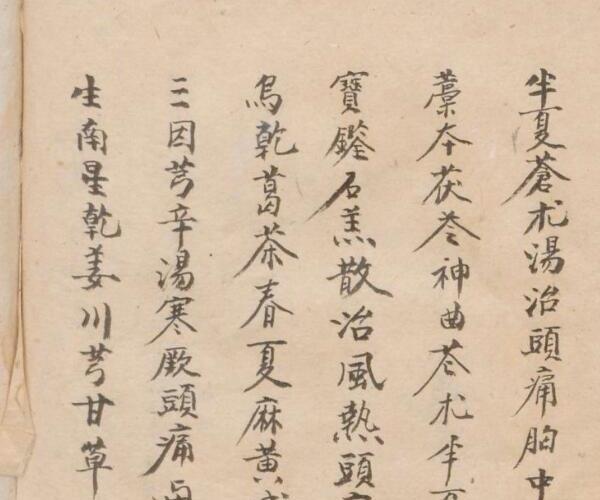 半夏蒼朮湯治頭痛胸中
藁本茯苓神曲苍朮半
寶鑑石羔散治風熱頭
烏乾葛茶春夏麻黄
三因芎辛湯寒厥頭痛
生南星乾姜川芎甘草